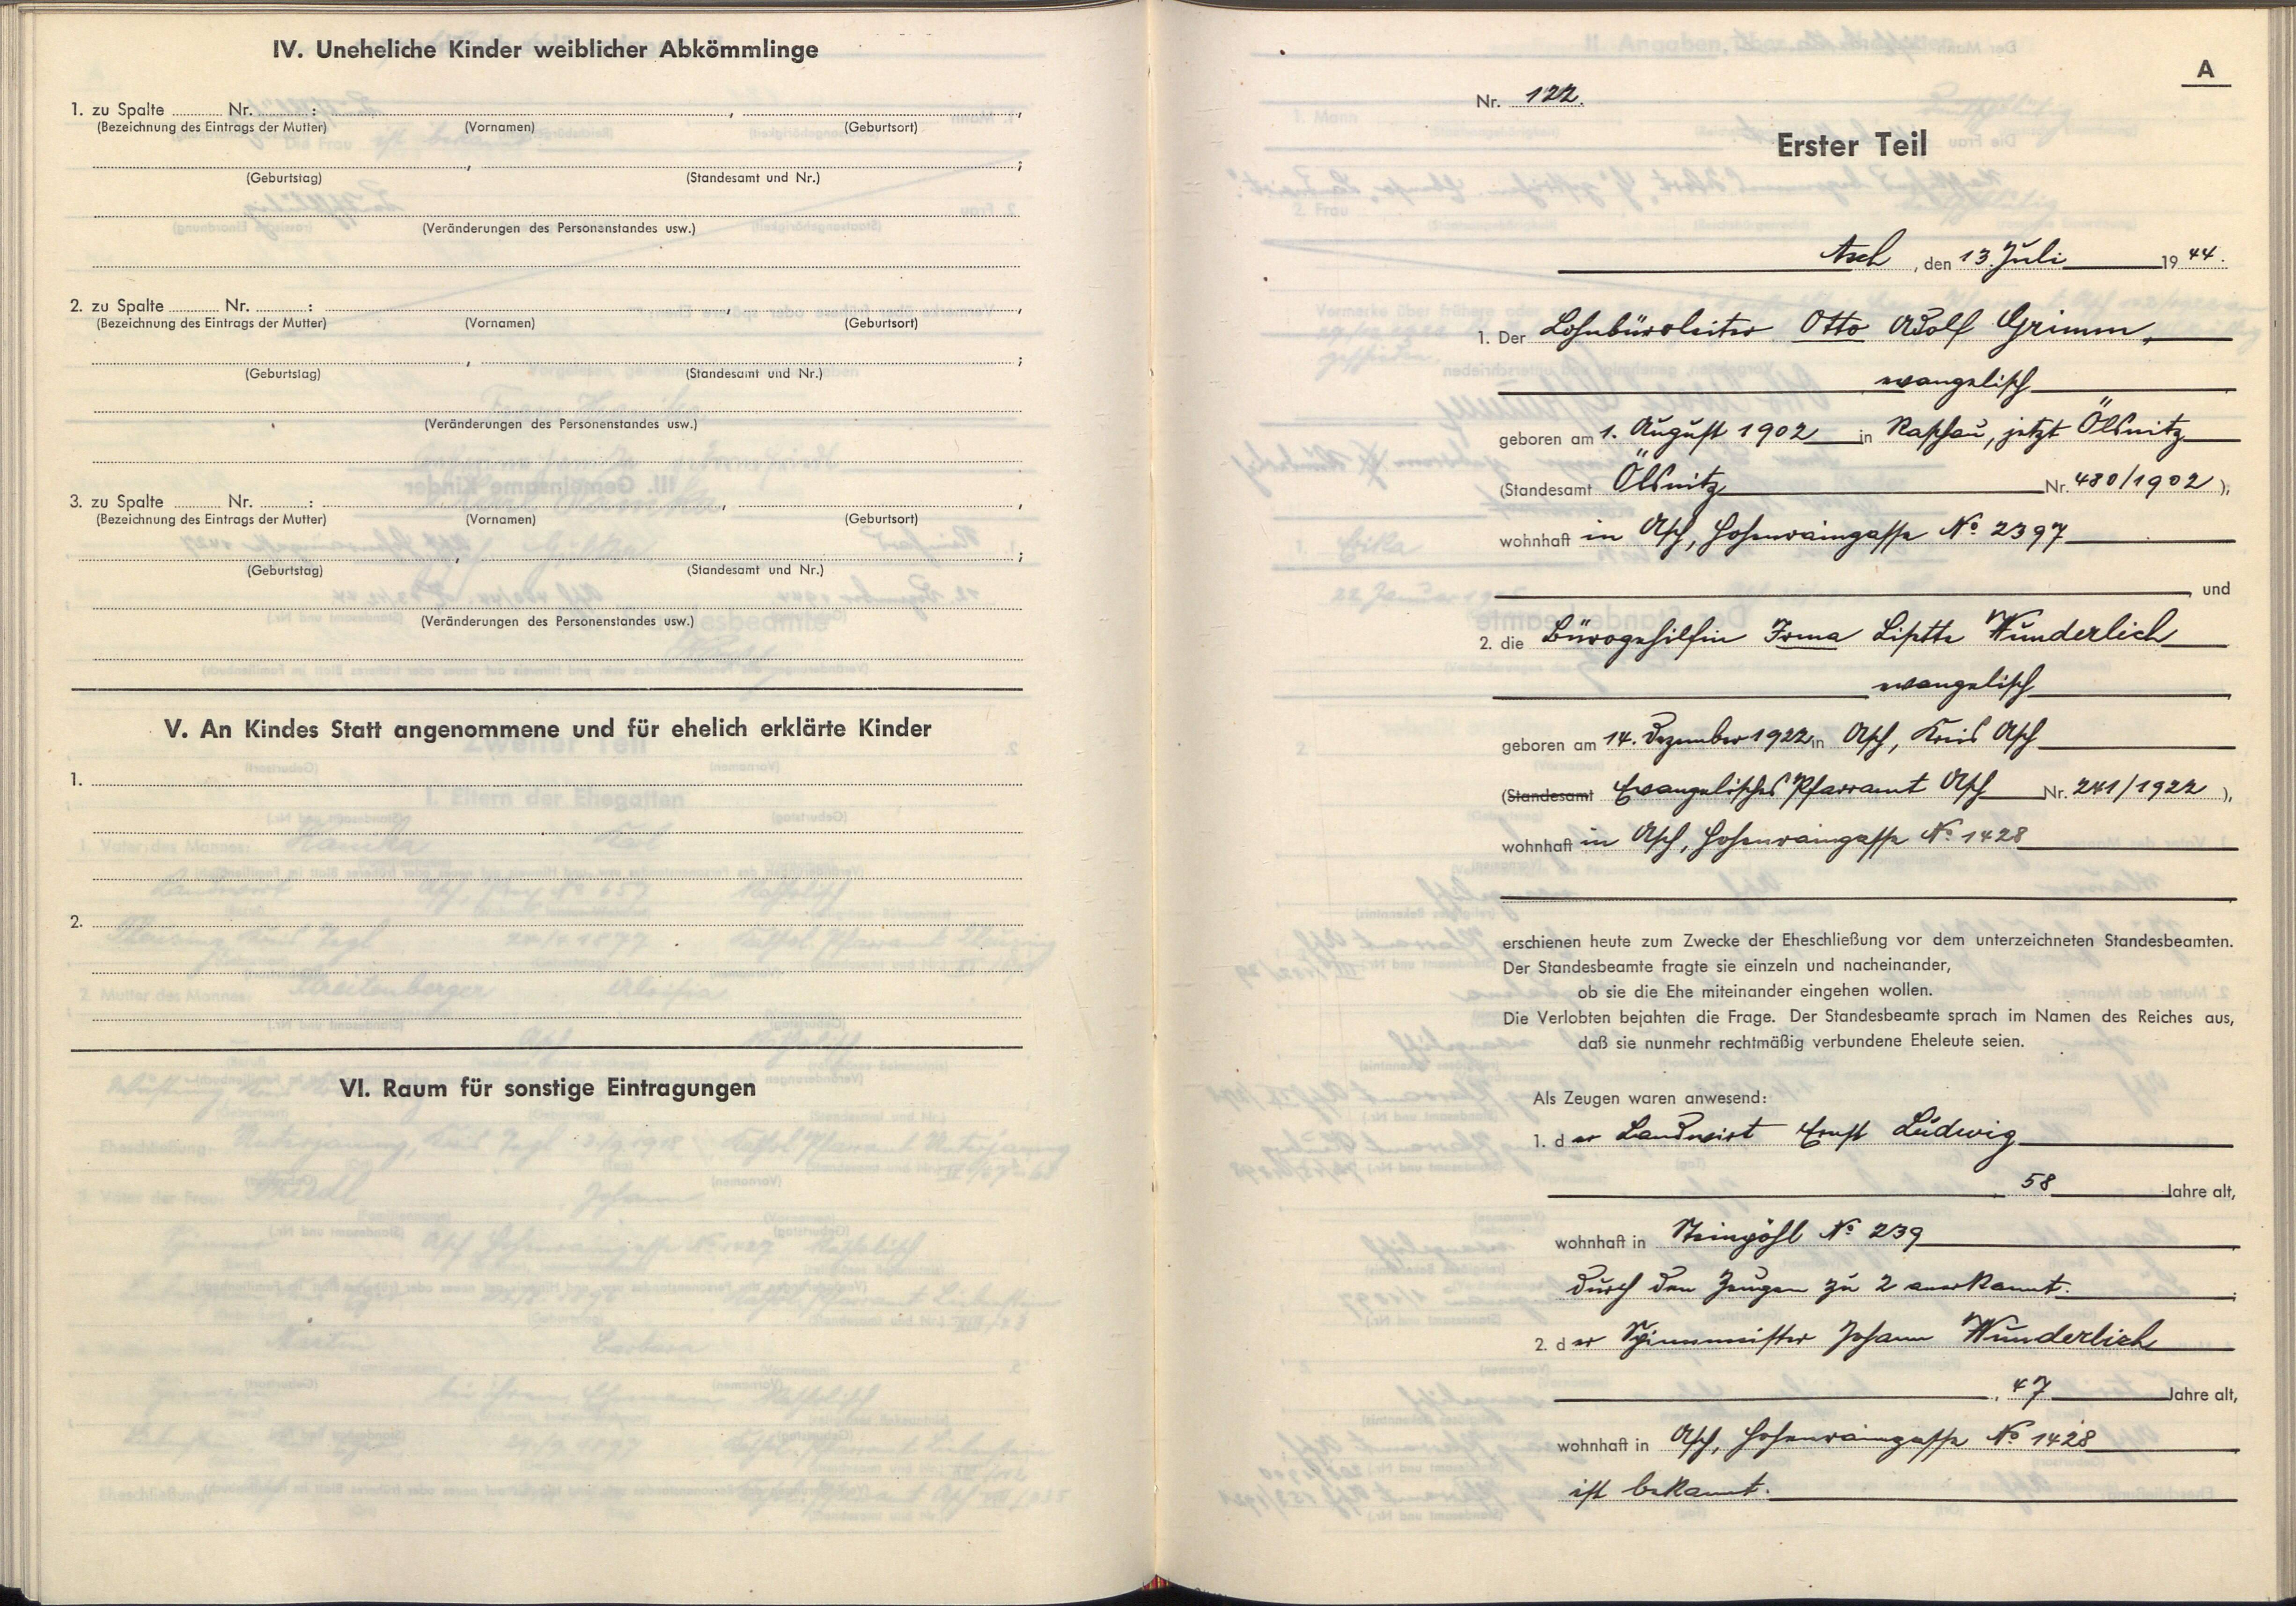 IV. Uneheliche Kinder weiblicher Abkömmlinge
1. zu Spalte ........ Nr. ........ :
(Bezeichnung des Eintrags der Mutter) (Vornamen) (Geburtsort)
(Geburtstag) (Standesamt und Nr.)
(Veränderungen des Personenstandes usw.)
2. zu Spalte ........ Nr. ........ :
(Bezeichnung des Eintrags der Mutter) (Vornamen) (Geburtsort)
(Geburtstag) (Standesamt und Nr.)
(Veränderungen des Personenstandes usw.)
3. zu Spalte ........ Nr. ........ :
(Bezeichnung des Eintrags der Mutter) (Vornamen) (Geburtsort)
(Geburtstag) (Standesamt und Nr.)
(Veränderungen des Personenstandes usw.)
V. An Kindes Statt angenommene und für ehelich erklärte Kinder
1.
2.
VI. Raum für sonstige Eintragungen
A
Nr. 122.
Erster Teil
Asch, den 13. Juli 1944.
1. Der Lohnbüroleiter Otto Adolf Grimm,
evangelisch
geboren am 1. August 1902 in Raschau, jetzt Ölsnitz
(Standesamt Ölsnitz Nr. 480/1902),
wohnhaft in Asch, Hohenraingasse No 2397
, und
2. die Bürogehilfin Irma Lisette Wunderlich
evangelisch
geboren am 14. Dezember 1922 in Asch, Kreis Asch
(Standesamt Evangelisches Pfarramt Asch Nr. 241/1922),
wohnhaft in Asch, Hohenraingasse No 1428
erschienen heute zum Zwecke der Eheschließung vor dem unterzeichneten Standesbeamten.
Der Standesbeamte fragte sie einzeln und nacheinander,
ob sie die Ehe miteinander eingehen wollen.
Die Verlobten bejahten die Frage. Der Standesbeamte sprach im Namen des Reiches aus,
daß sie nunmehr rechtmäßig verbundene Eheleute seien.
Als Zeugen waren anwesend:
1. der Landwirt Ernst Ludwig
, 58 Jahre alt,
wohnhaft in Steinpöhl No 239
durch den Zeugen zu 2 anerkannt.
2. der Spinnmeister Johann Wunderlich
, 47 Jahre alt,
wohnhaft in Asch, Hohenraingasse No 1428
ist bekannt.